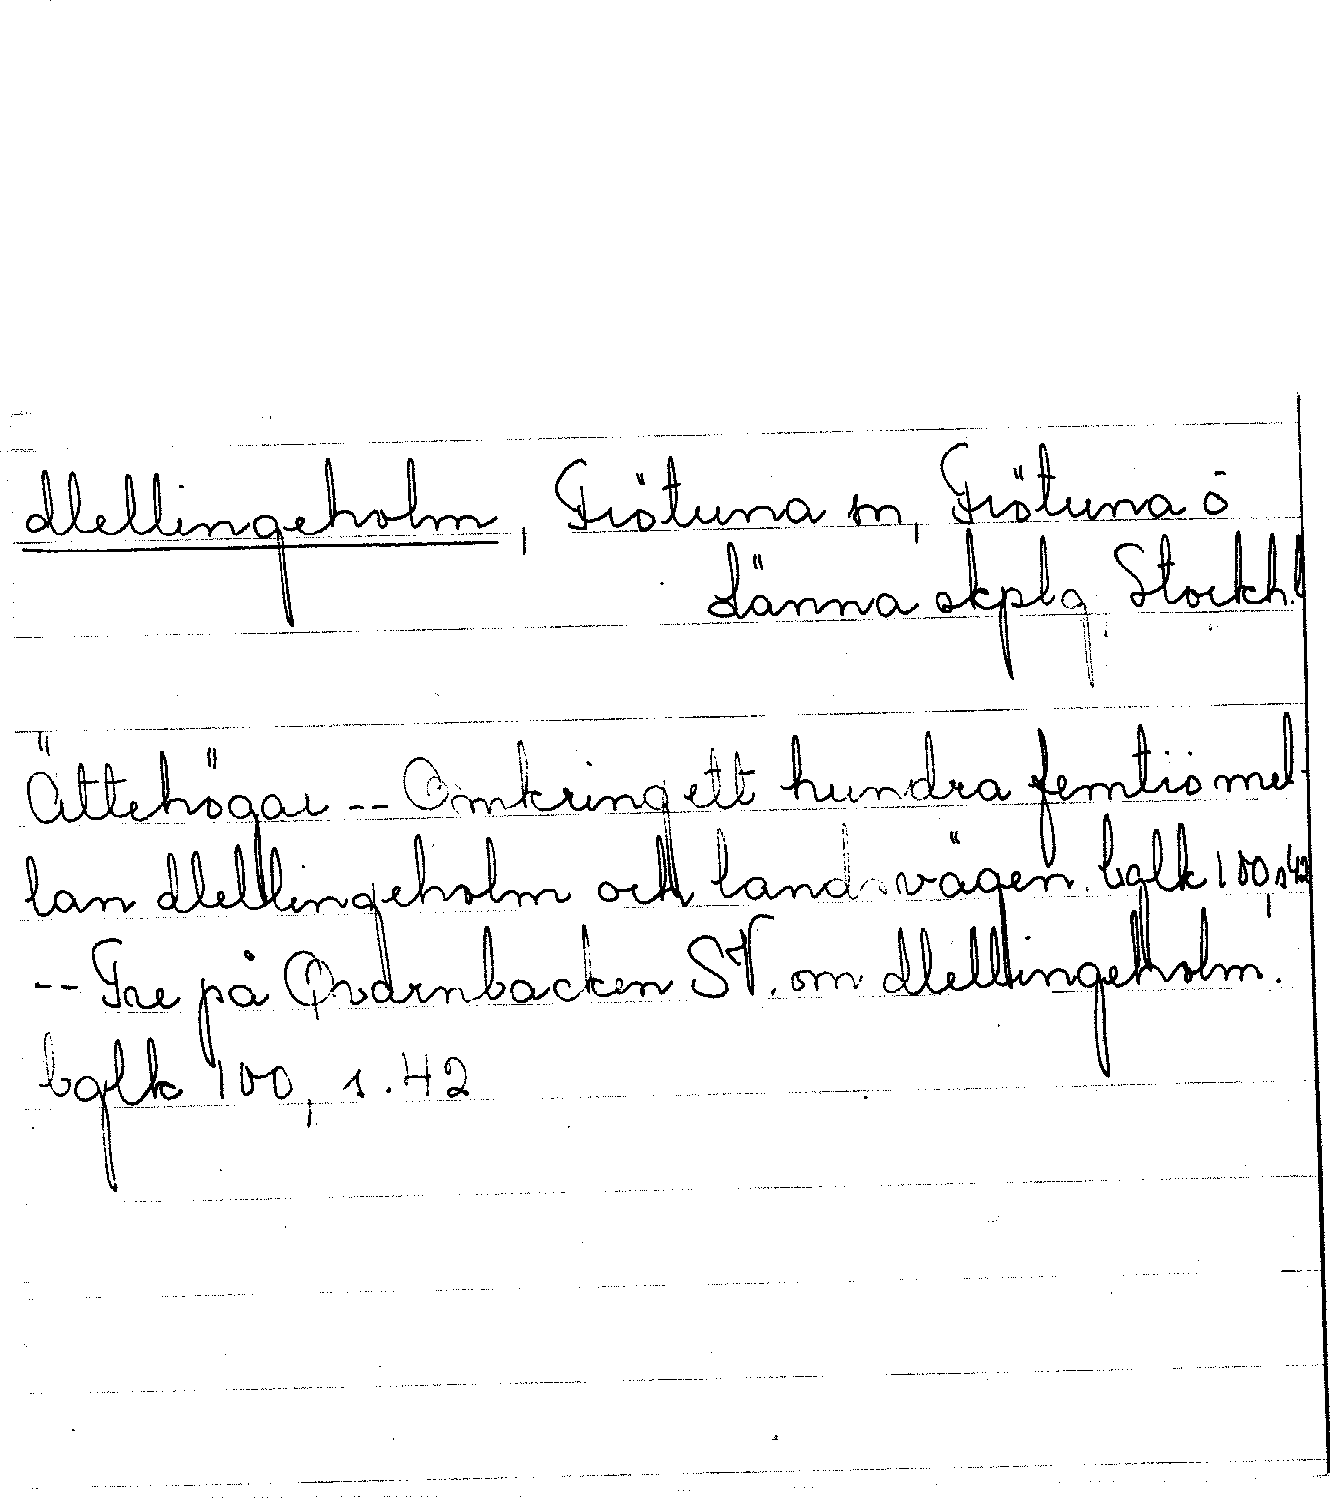 Mellingeholm, Frötuna sn, Frötuna o
Länna skplg Stockh.l
Ättehögar -- Omkring ett hundra femtio mel-
lan Mellingeholm och landsvägen. bglk 100, s 42
-- Tre på Qvarnbacken SV. om Mellingeholm.
bglk 100, s. 42